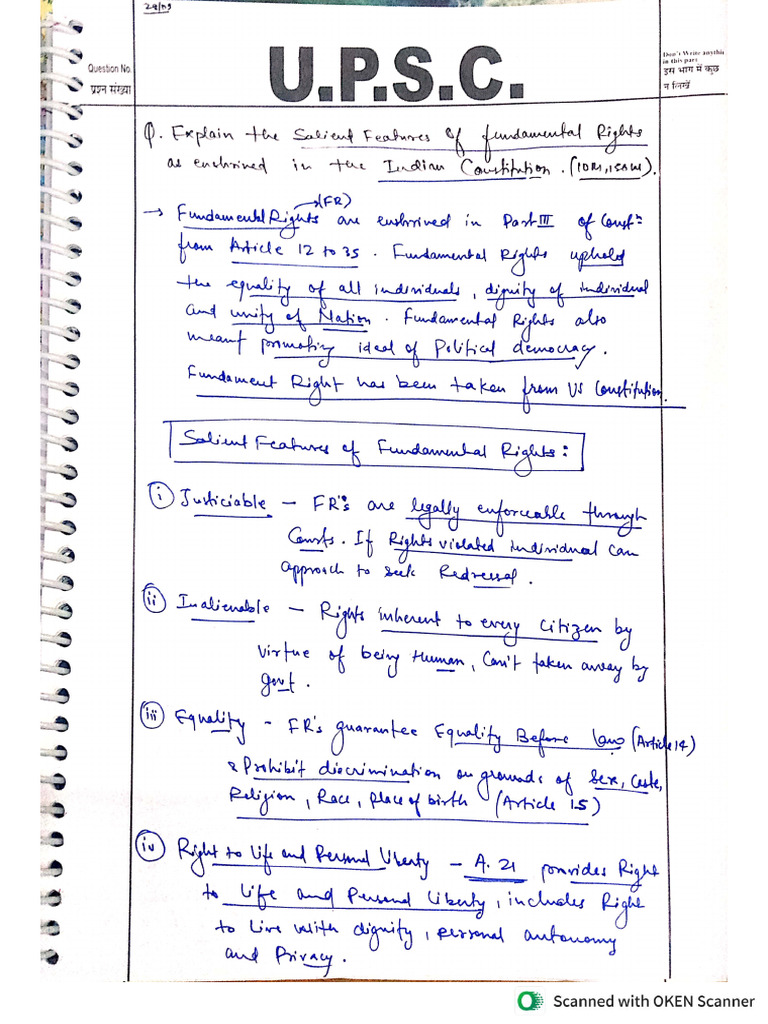 29/09
Question No.
प्रश्न संख्या
U.P.S.C.
Don't Write anythin
in this part
इस भाग में कुछ
न लिखें
Q. Explain the Salient Features of fundamental Rights
as enshrined in the Indian Constitution. (10M, 150W).
→ (FR)
→ Fundamental Rights are enshrined in Part III of Const:
from Article 12 to 35. Fundamental Rights uphold
the equality of all individuals, dignity of individual
and unity of Nation. Fundamental Rights also
meant promoting ideal of Political democracy.
Fundament Right has been taken from US Constitution.
Salient Features of Fundamental Rights:
(i) Justiciable - FR's are legally enforceable through
Courts. If Rights violated individual can
approach to seek Redressal.
(ii) Inalienable - Rights inherent to every citizen by
virtue of being Human, Can't taken away by
govt.
(iii) Equality - FR's guarantee Equality Before law (Article 14)
& Prohibit discrimination on grounds of Sex, Caste,
Religion, Race, Place of birth (Article 15)
(iv) Right to life and Personal Liberty - A. 21 provides Right
to Life and Personal Liberty, includes Right
to Live with dignity, personal autonomy
and Privacy.
Scanned with OKEN Scanner